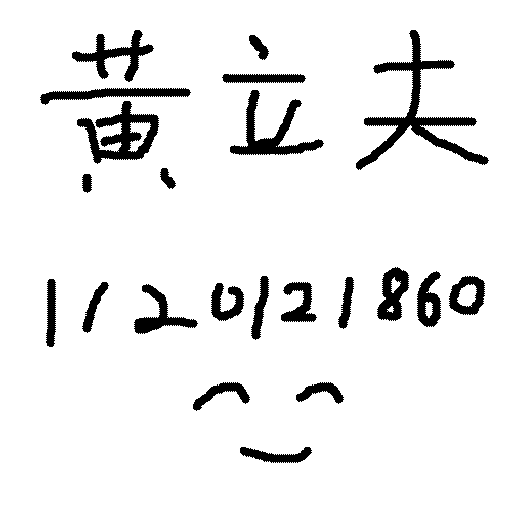 黃立夫
1120121860